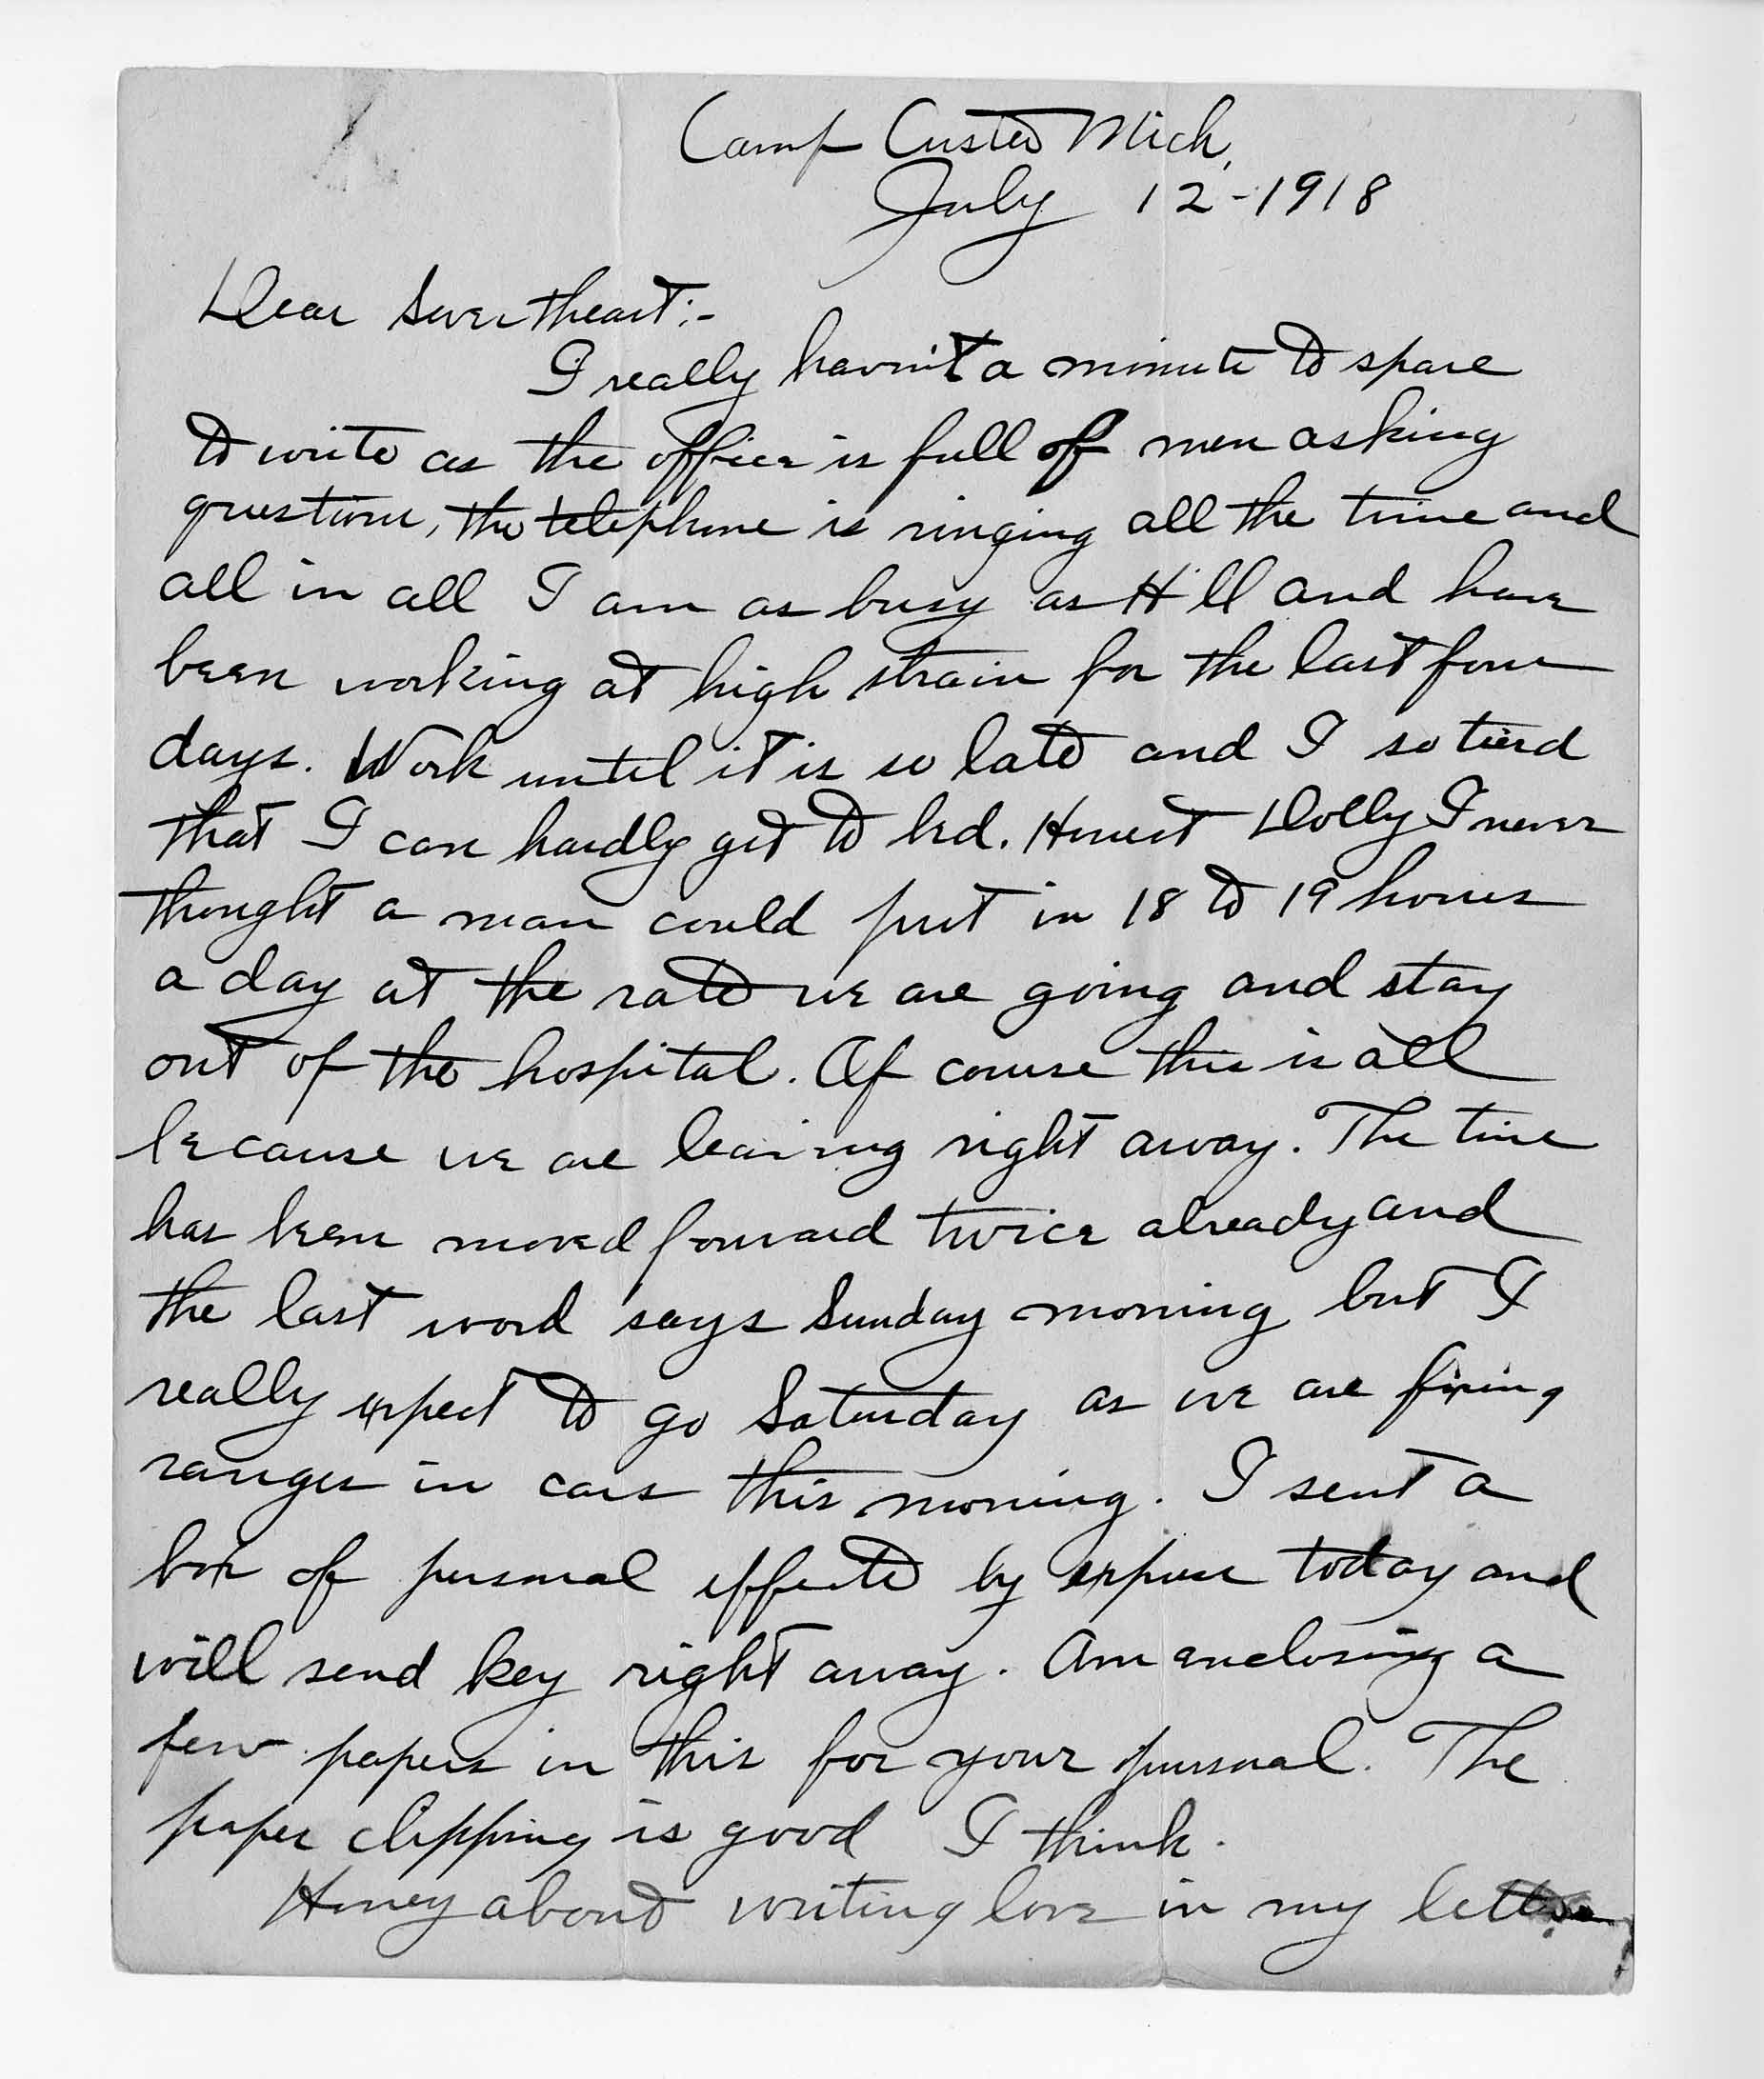 Camp Custer Mich,
July 12-1918
Dear Sweetheart:-
I really havn't a minute to spare
to write as the office is full of men asking
questions, the telephone is ringing all the time and
all in all I am as busy as H'll and have
been working at high strain for the last four
days. Work until it is so late and I so tierd
that I can hardly get to bed. Honest Dolly I never
thought a man could put in 18 to 19 hours
a day at the rate we are going and stay
out of the hospital. Of course this is all
because we are leaving right away. The time
has been moved forward twice already and
the last word says Sunday morning but I
really expect to go Saturday as we are fixing
ranges in cars this morning. I sent a
box of personal effects by express today and
will send key right away. Am enclosing a
few papers in this for your perusal. The
paper clipping is good I think.
Honey about writing love in my letters